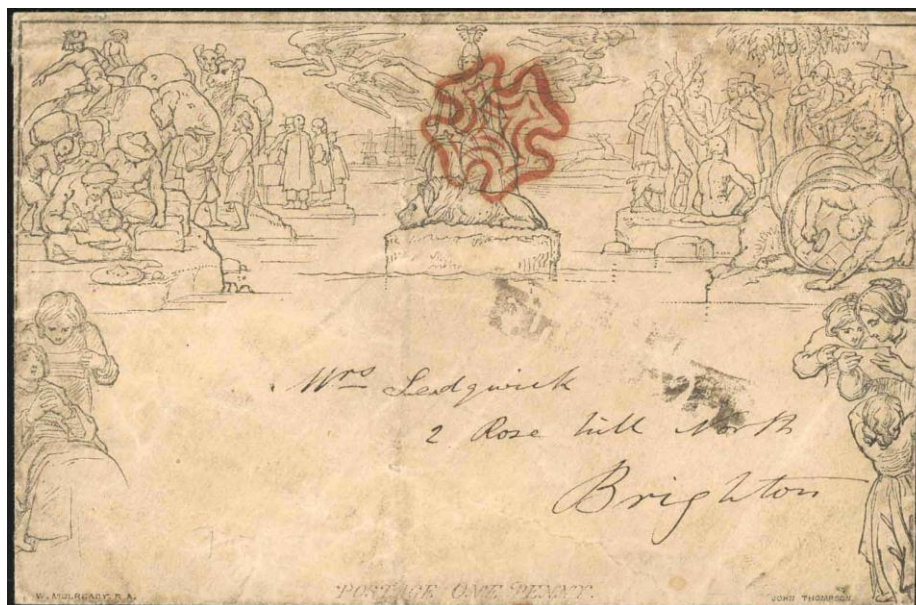 Mrs Sedgwick
2 Rose hill North
Brighton
W. MULREADY, R.A.
POSTAGE ONE PENNY.
JOHN THOMPSON